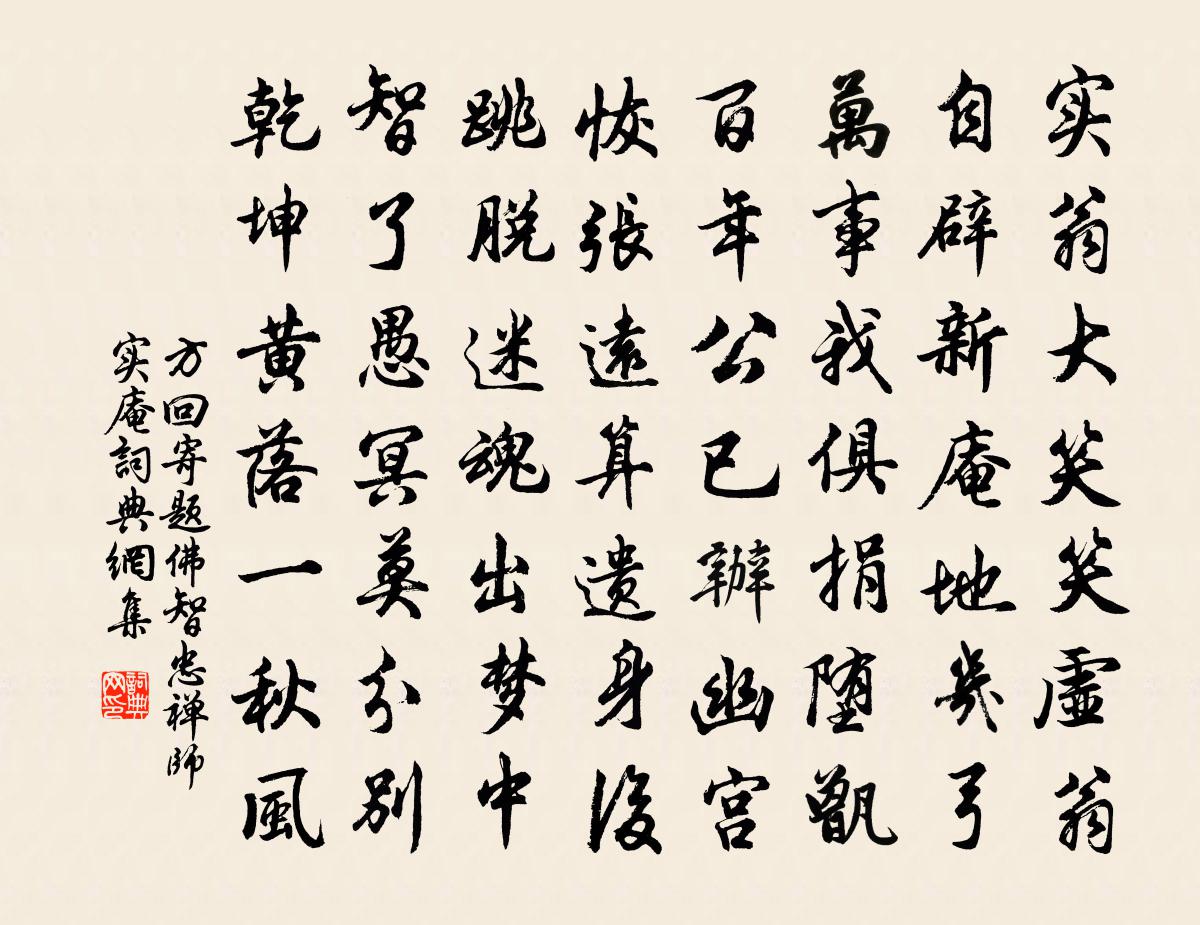 实翁大笑笑虚翁
自辟新庵地几弓
萬事我俱捐堕甑
百年公已辦幽宫
恢張遠算遗身後
跳脱迷魂出梦中
智了愚冥莫分别
乾坤黄落一秋風
方回寄题佛智忠禅师
实庵詞典網集
詞典网印